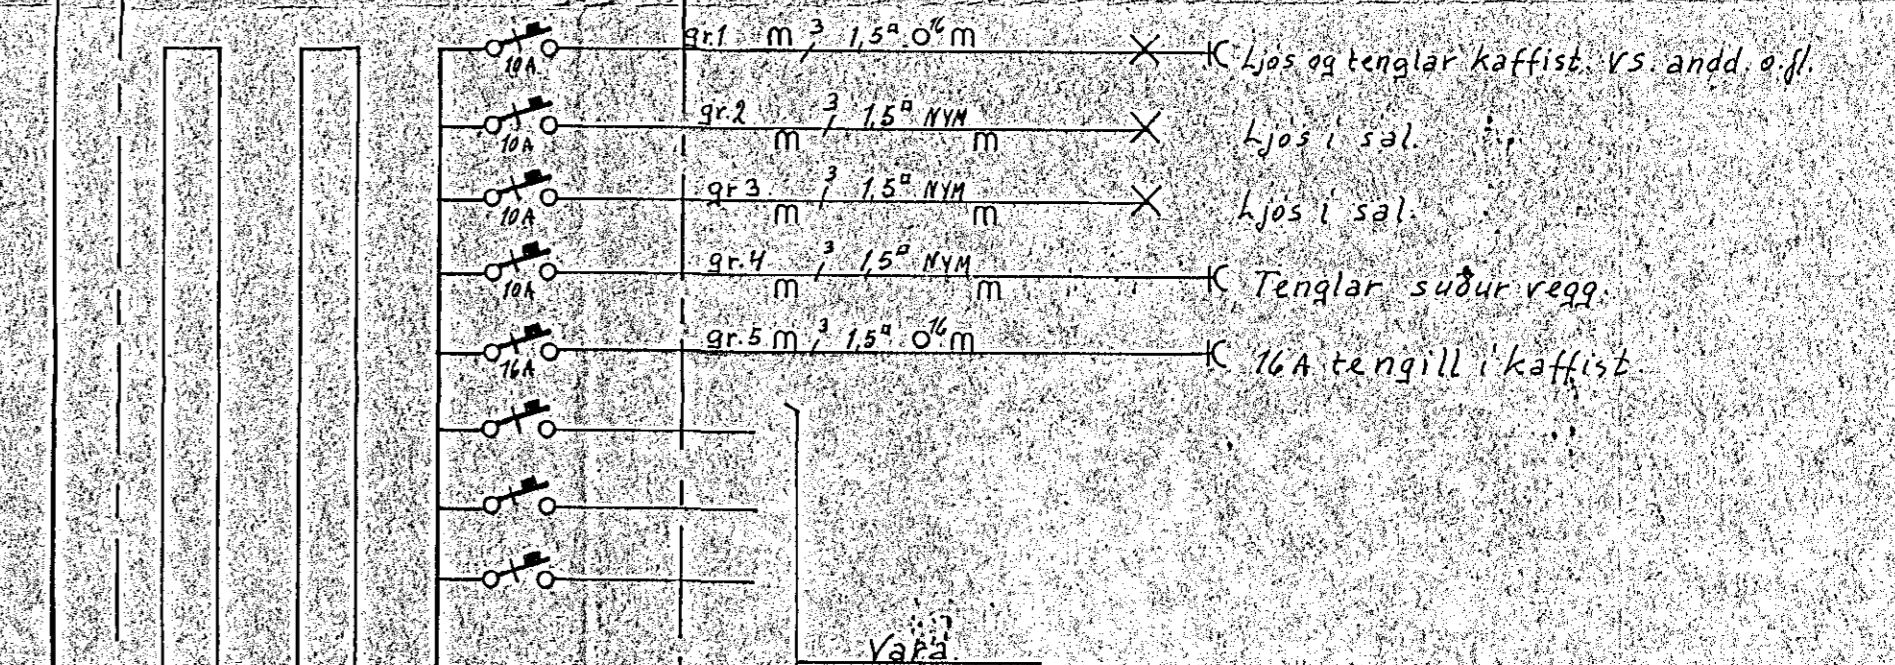 gr.1 m 3 1,5▫ o16 m Ljós og tenglar kaffist. VS. andd. o.fl.
10A
gr.2 m 3 1,5▫ NYM m Ljós í sal.
10A
gr 3 m 3 1,5▫ NYM m Ljós í sal.
10A
gr.4 m 3 1,5▫ NYM m Tenglar suður vegg.
10A
gr.5 m 3 1,5▫ o16 m 16A tengill í kaffist.
16A
Vara.